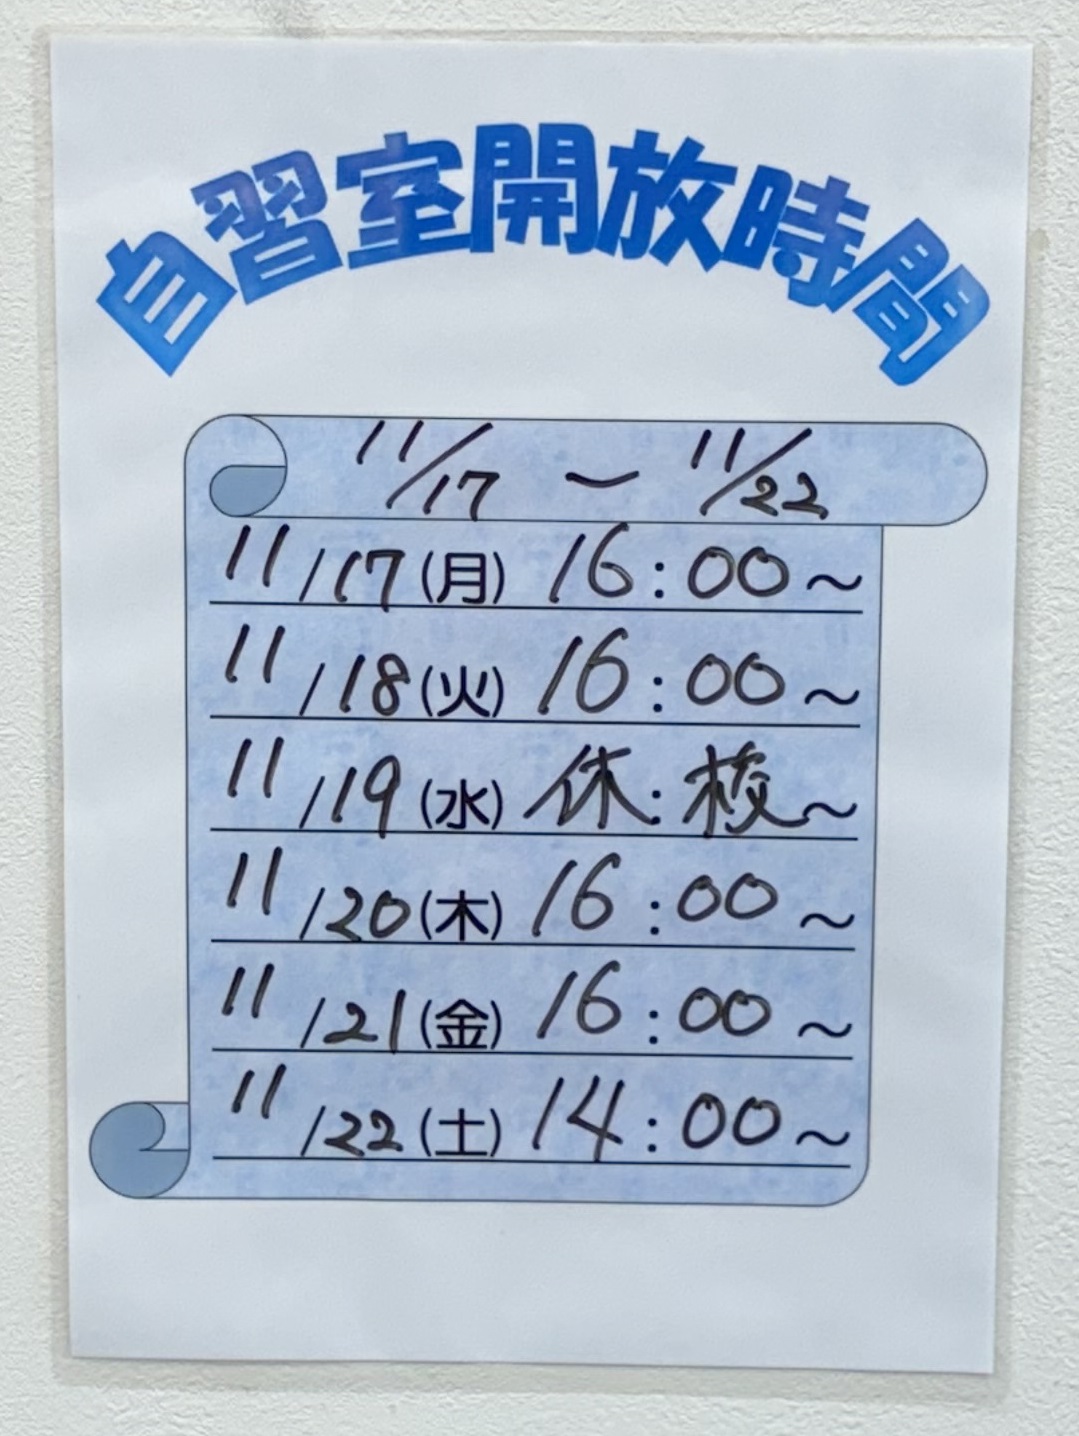 自習室開放時間
11/17 ～ 11/22
11/17(月) 16:00～
11/18(火) 16:00～
11/19(水) 休:校～
11/20(木) 16:00～
11/21(金) 16:00～
11/22(土) 14:00～